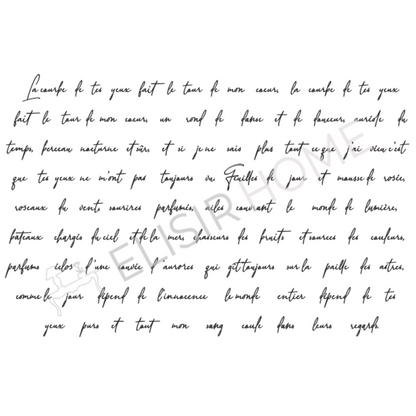 La courbe de tes yeux fait le tour de mon coeur, la courbe de tes yeux
fait le tour de mon coeur, un rond de danse et de douceur, auréole du
temps, berceau nocturne et sûr, et si je ne sais plus tout ce que j'ai vécu c'est
que tes yeux ne m'ont pas toujours vu. Feuilles de jour et mousse de rosée,
roseaux du vent sourires parfumés, ailes couvrant le monde de lumière,
bateaux chargés du ciel et de la mer, chasseurs des bruits et sources des couleurs,
parfums éclos d'une couvée d'aurores qui gît toujours sur la paille des astres,
comme le jour dépend de l'innocence le monde entier dépend de tes
yeux purs et tout mon sang coule dans leurs regards.
ELISIR HOME